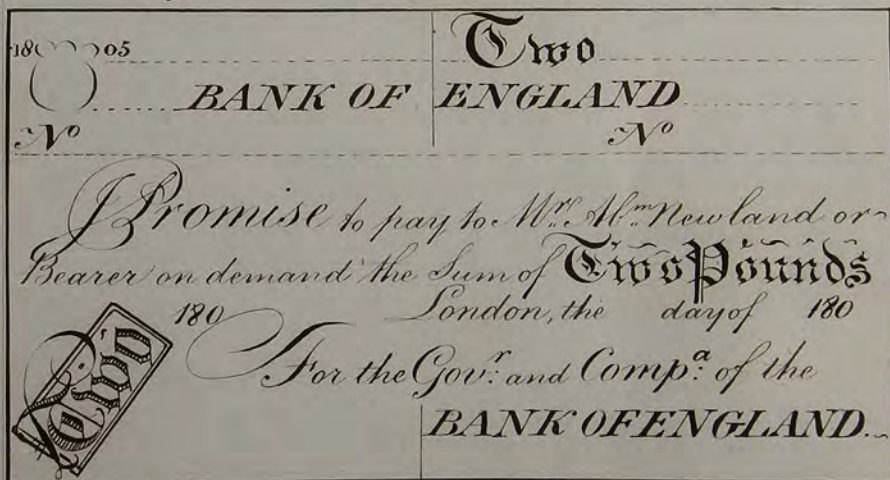 18 05 Two
BANK OF ENGLAND
No No
I Promise to pay to Mr. Abm. Newland or
Bearer on demand the Sum of Two Pounds
180 London, the day of 180
Two
For the Govr: and Compa: of the
BANK OF ENGLAND.